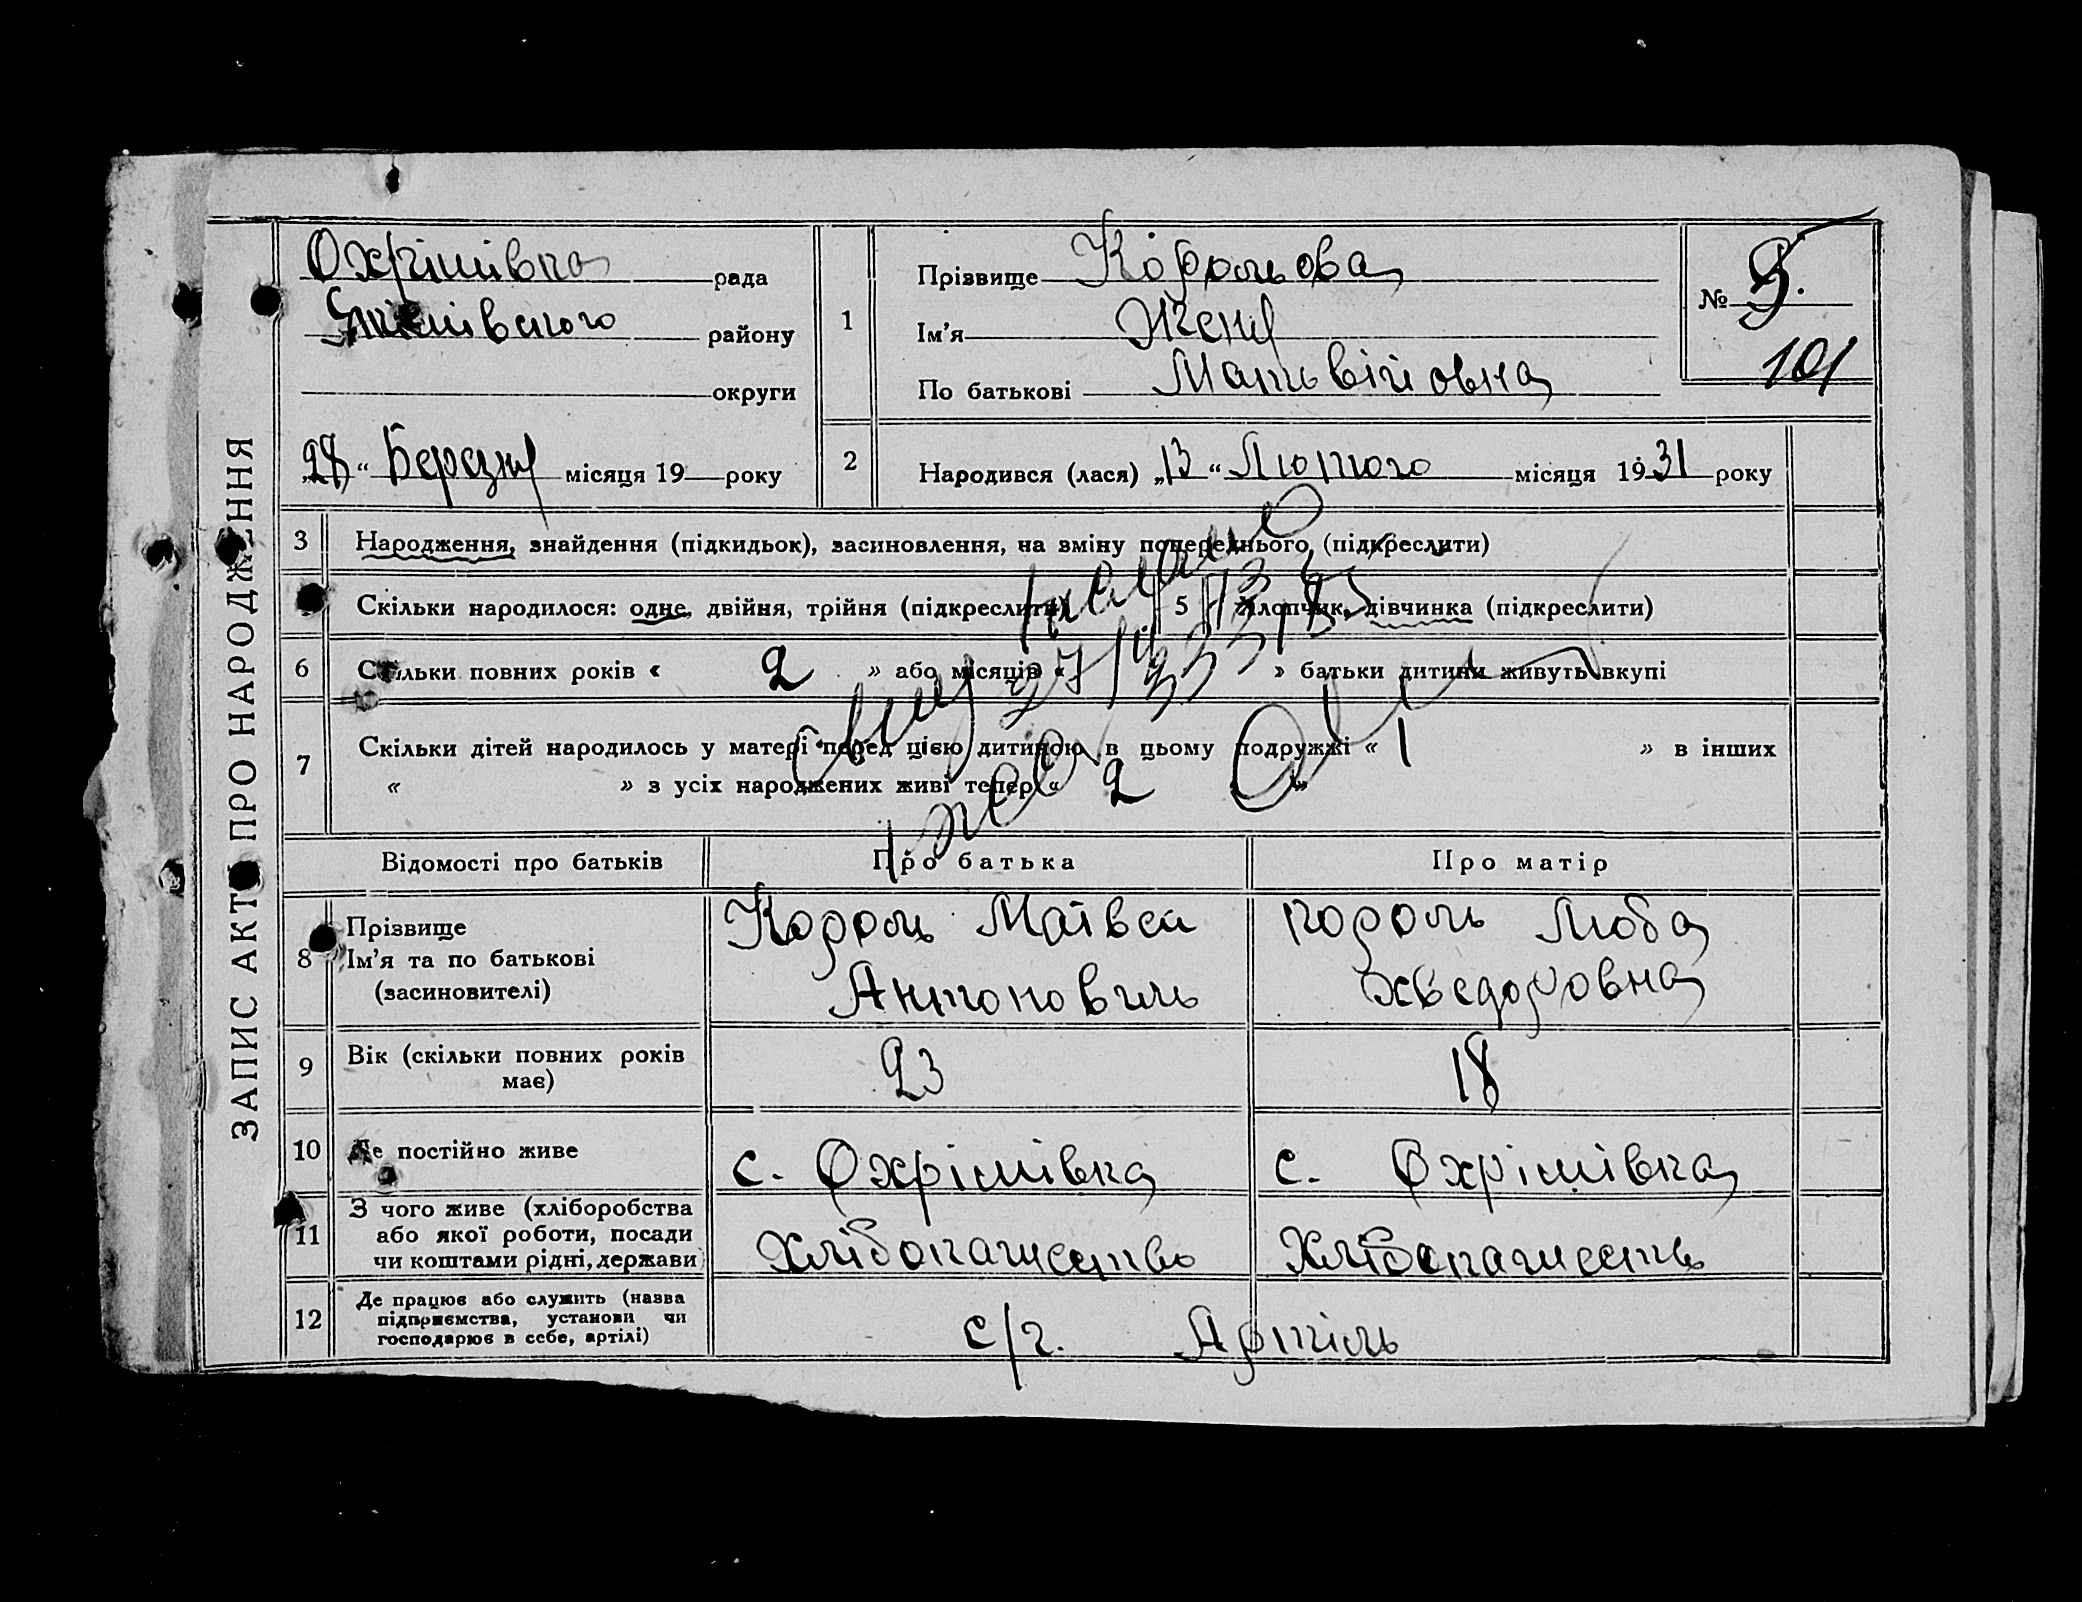 ЗАПИС АКТУ ПРО НАРОДЖЕННЯ
Охрімівка рада
району
округи
28 “ Березня місяця 19 року
1
Прізвище Корольова
Ім’я Женя
По батькові Матьвійовна
№ 5.
101
2
Народився (лася) „13 “ Лютого місяця 1931 року
3 Народження, знайдення (підкидьок), засиновлення, на зміну попереднього, (підкреслити)
Скільки народилося: одне, двійня, трійня (підкреслити) 5 Хлопчик, дівчинка (підкреслити)
6 Скільки повних років « 2 » або місяців « » батьки дитини живуть вкупі
7 Скільки дітей народилось у матері перед цією дитиною в цьому подружжі « 1 » в інших
« » з усіх народжених живі тепер « 2 »
27/IV 33
Відомості про батьків Про батька Про матір
8 Прізвище
Ім’я та по батькові
(засиновителі)
Король Матвєй
Антоновичь
король Люба
Хведоровна
9 Вік (скільки повних років
має)
23 18
10 Де постійно живе с. Охрімівка с. Охрімівка
11 З чого живе (хліборобства
або якої роботи, посади
чи коштами рідні, держави)
Хлібопашество Хлібопашество
12 Де працює або служить (назва
підприємства, установи чи
господарює в себе, артілі)
с/г. Артіль